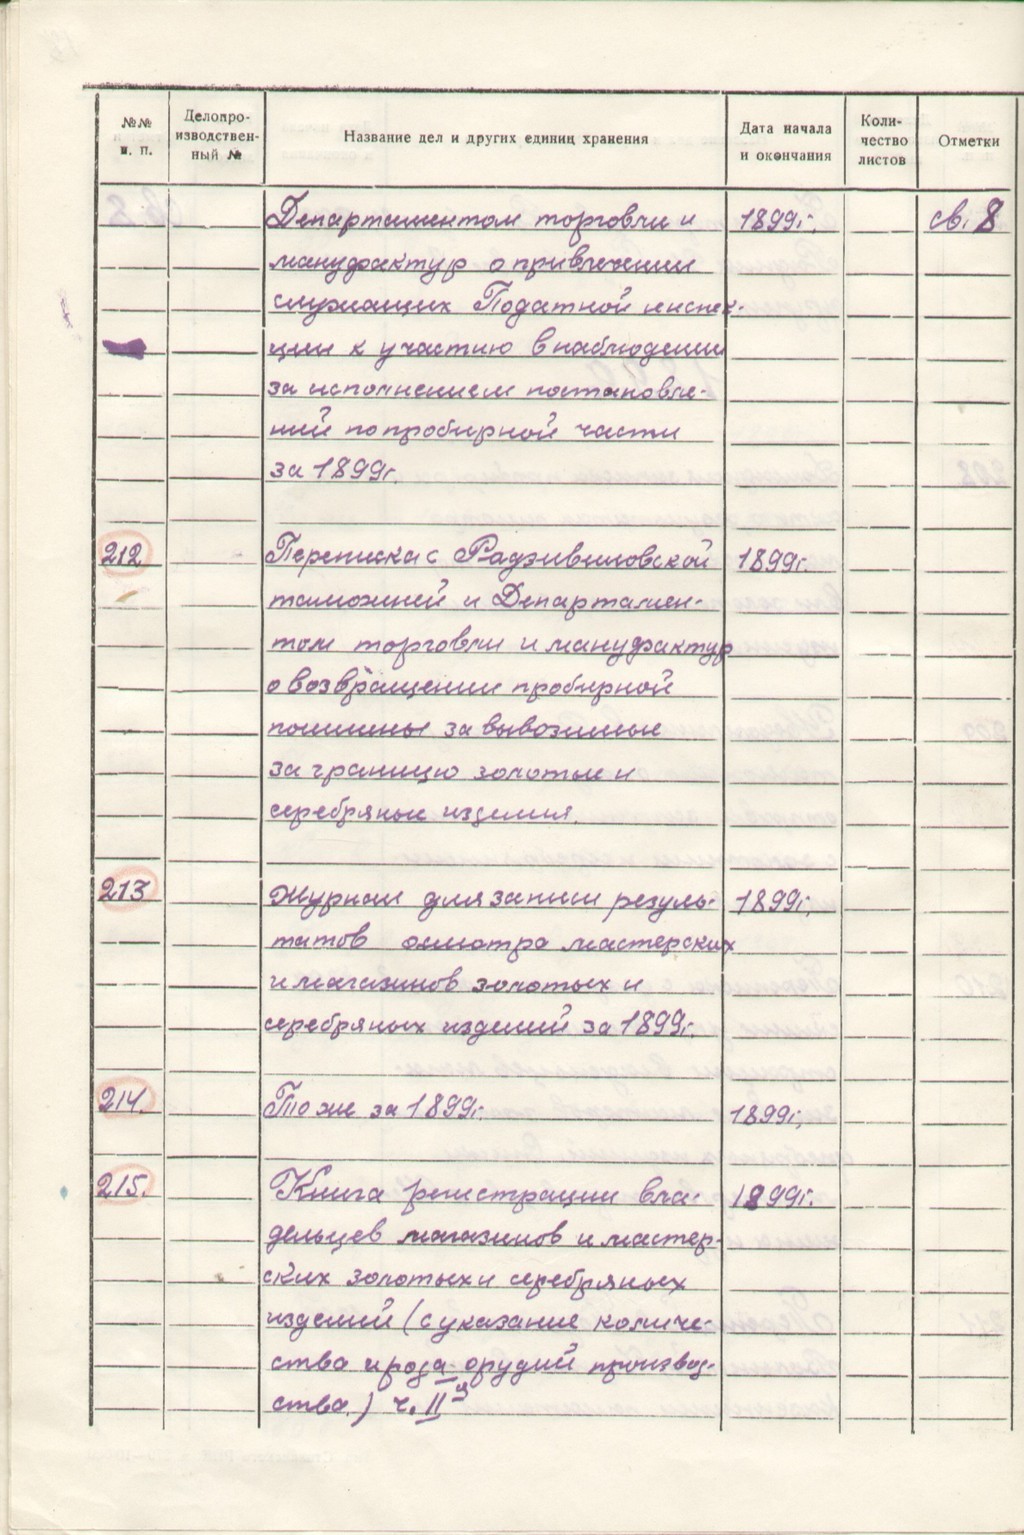 №№ п. п. Делопро- изводствен- ный № Название дел и других единиц хранения Дата начала и окончания Коли- чество листов Отметки
Департаментом торговли и 1899г. св. 8
мануфактур о привлечении
служащих Податной инспек-
ции к участию в наблюдении
за исполнением постановле-
ний по пробирной части
за 1899г.
212 Переписка с Радзивиловской 1899г.
таможней и Департамен-
том торговли и мануфактур
о возвращении пробирной
пошлины за вывозимые
за границу золотые и
серебряные изделия.
213 Журнал для записи резуль- 1899г.
татов осмотра мастерских
и магазинов золотых и
серебряных изделий за 1899г.
214. То же за 1899г. 1899г.
215. Книга регистрации вла- 1899г.
дельцев магазинов и мастер-
ских золотых и серебряных
изделий (с указание количе-
ства и рода орудий производ-
ства.) ч. II